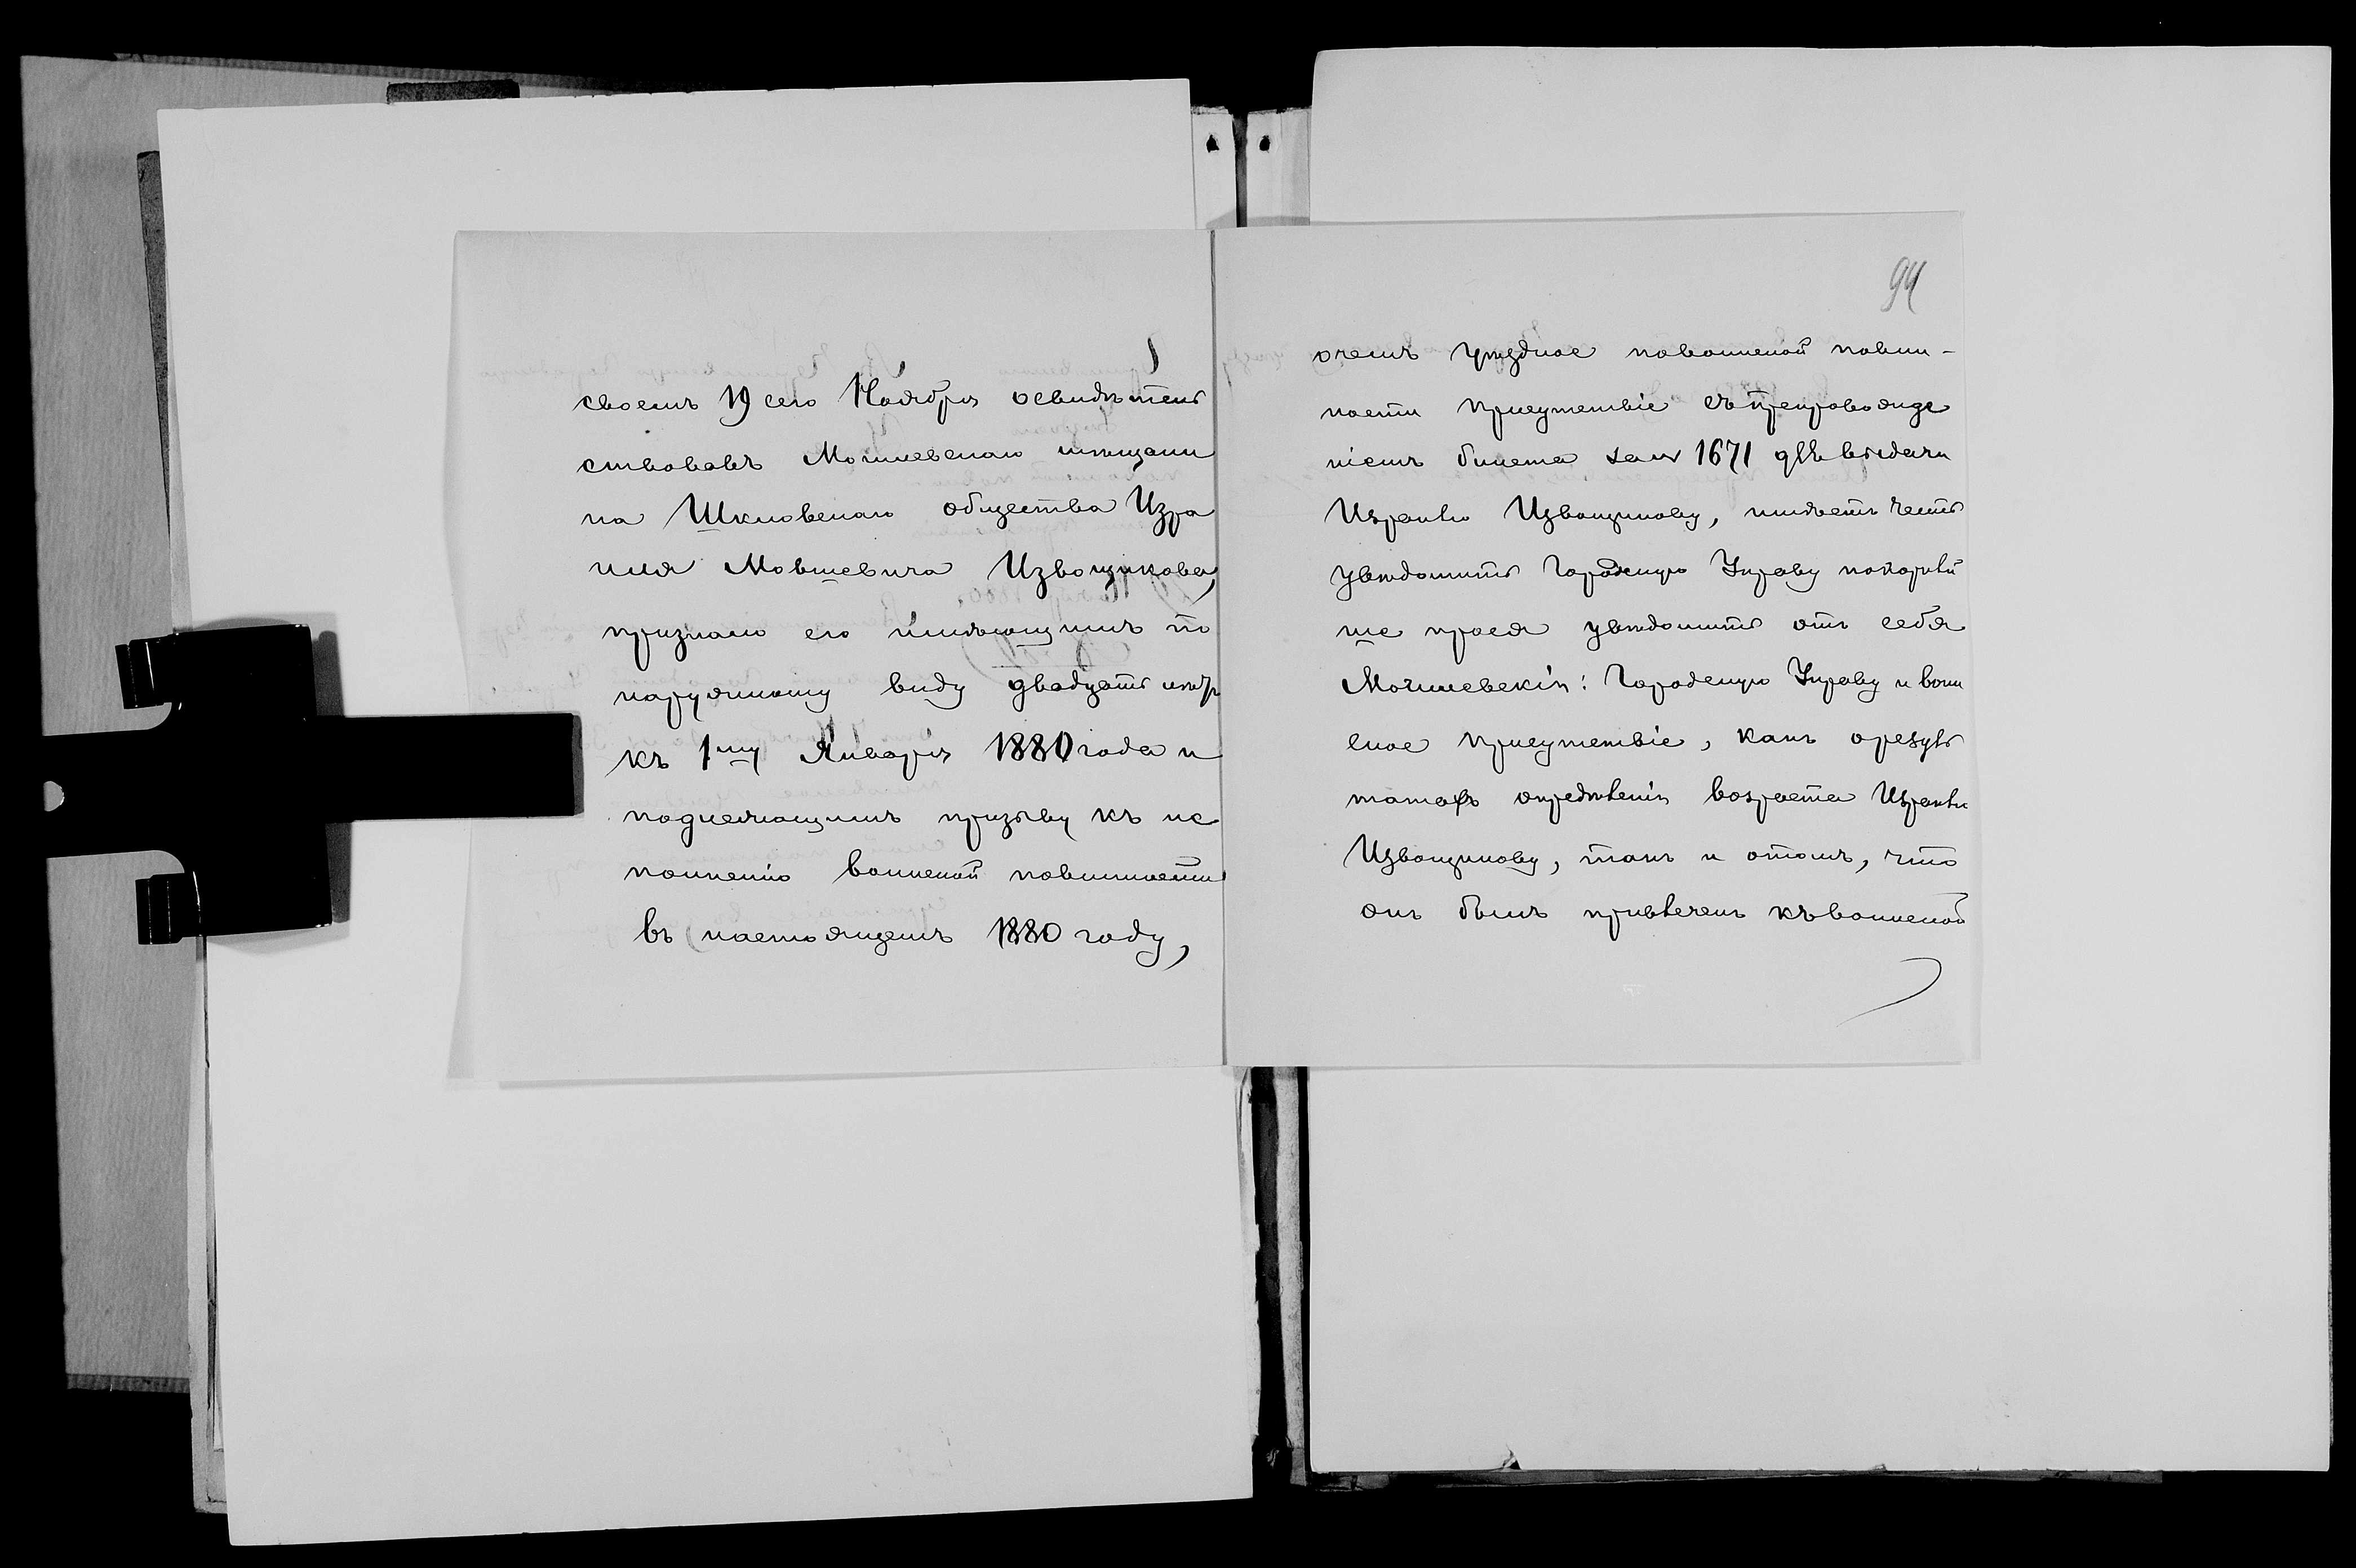 своемъ 19 сего Ноября освидѣтель
ствовавъ Могилевскаго мѣщани
на Шкловскаго общества Изра
иля Мовшевича Извощикова,
признало его имѣющимъ по
наружному виду двадцать
къ 1му Января 1880 года и
подлежащимъ призыву къ ис
полненію воинской повинности
въ настоящемъ 1880 году,
94
о чемъ уѣздное по воинской повин-
ности присутствіе съ препровожде
ніемъ билета за № 1671 для выдачи
Израилю Извощикову, имѣетъ честь
увѣдомить Городскую Управу покорнѣй
ше прося увѣдомить отъ себя
Могилевскія: Городскую Управу и воин
ское присутствіе, какъ о резуль
татахъ опредѣленія возраста Израилю
Извощикову, такъ и о томъ, что
онъ былъ привлеченъ къ воинской